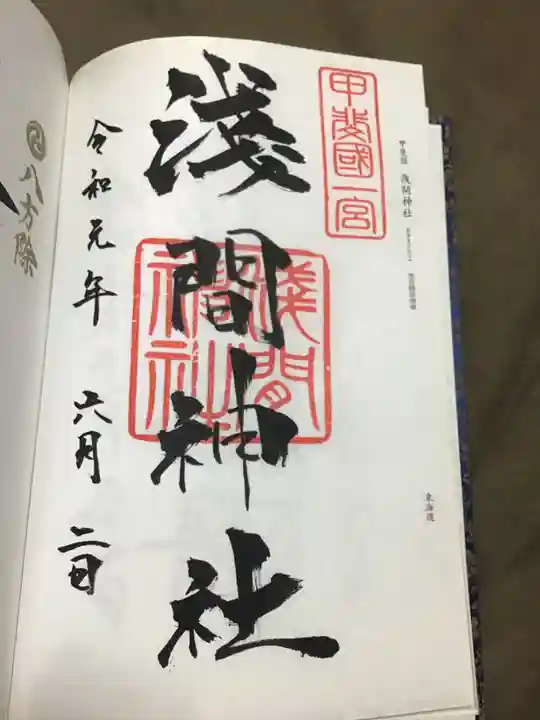 甲斐國 浅間神社
東海道
甲斐國一宮
淺間神社
淺間神社
令和元年 六月 二日
八方除